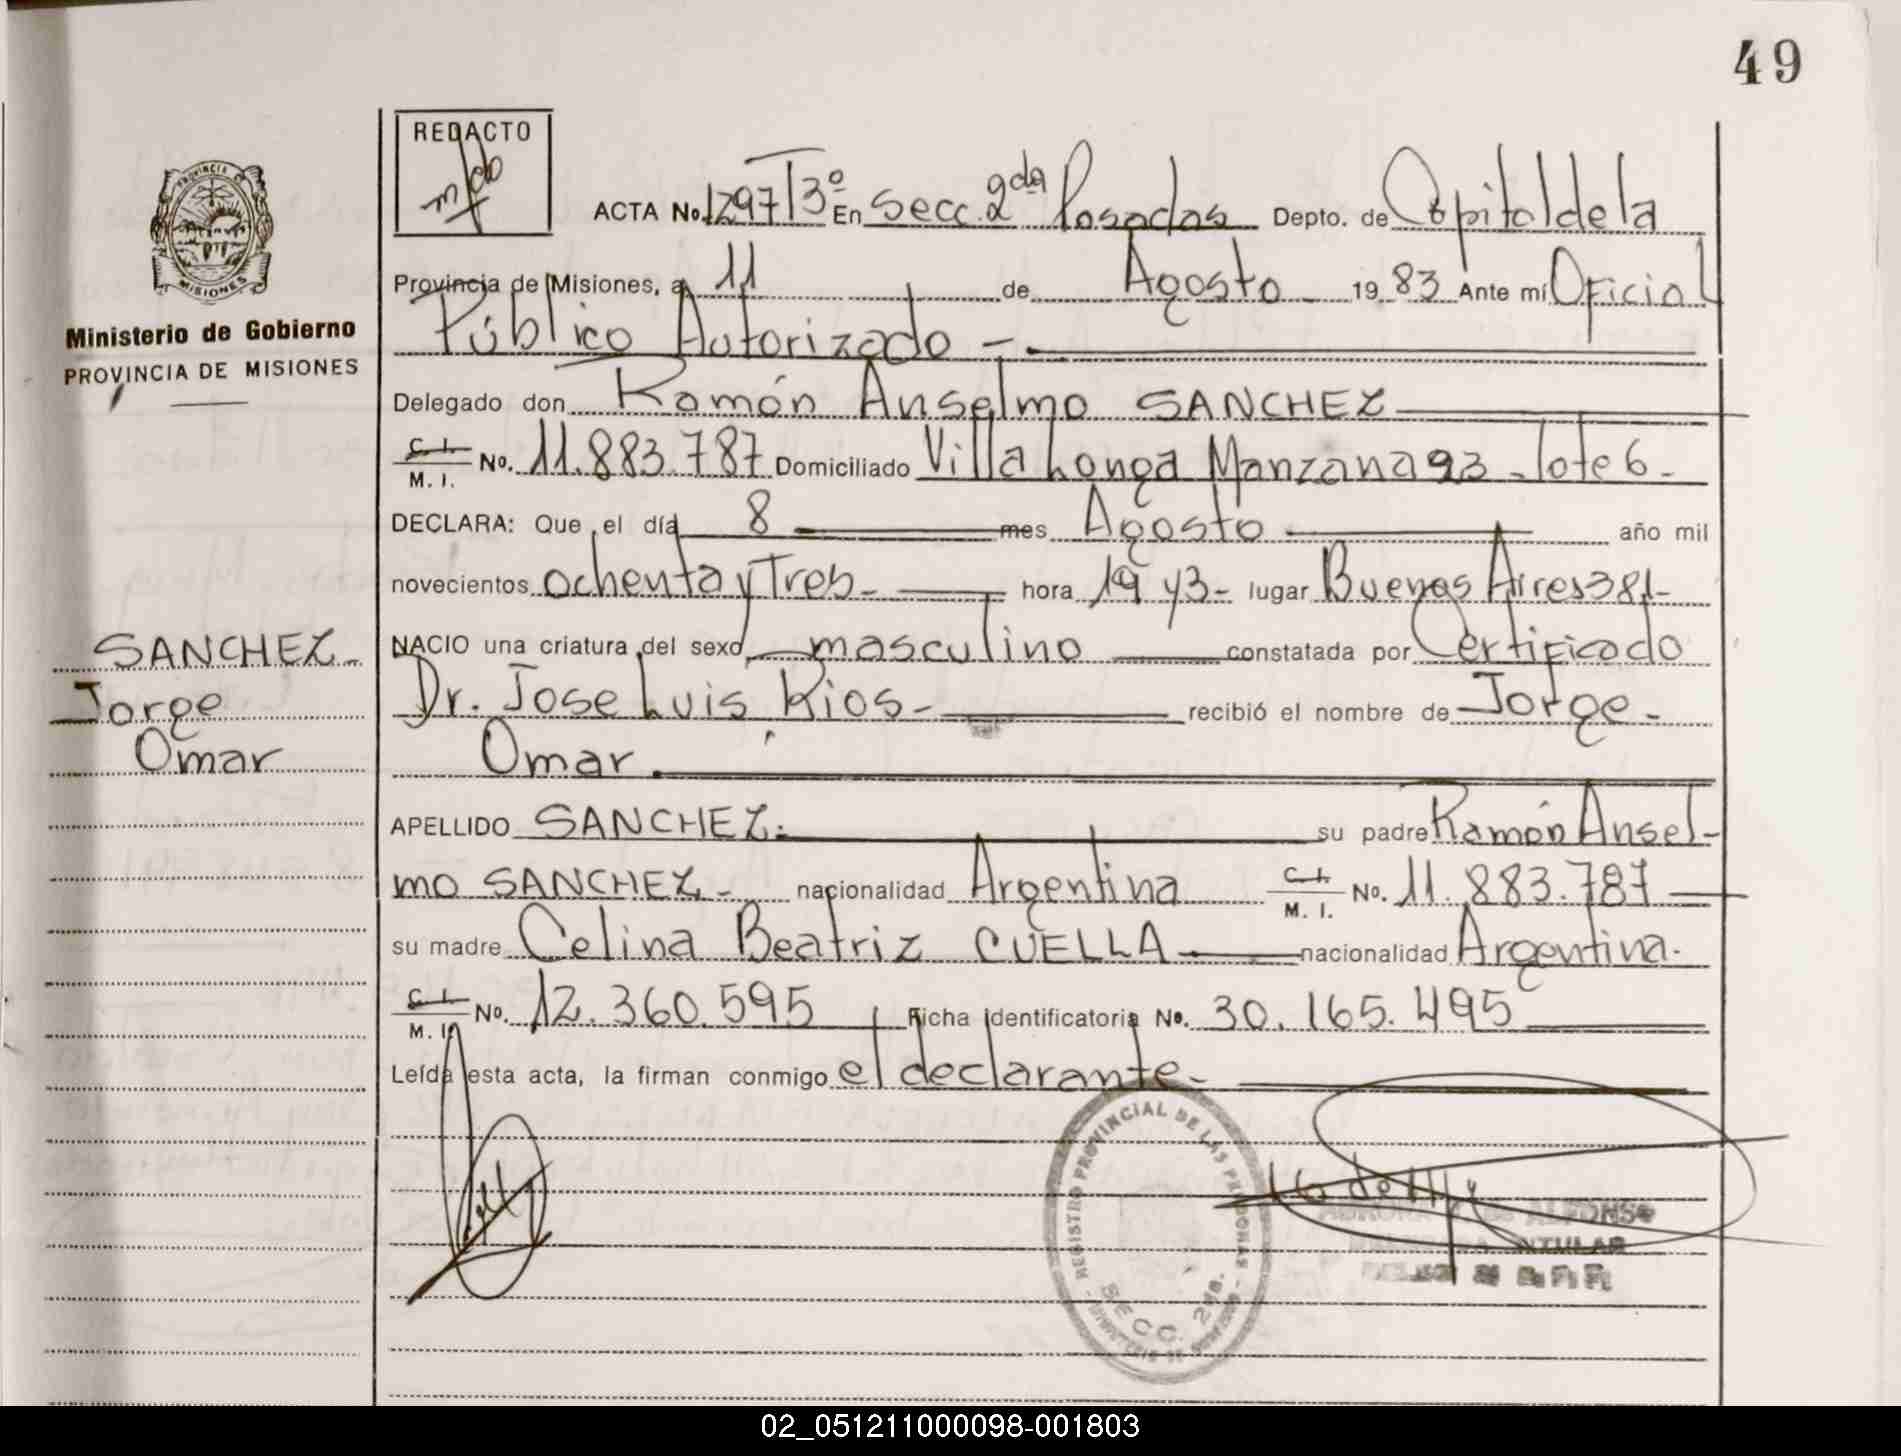 49
REDACTO
ACTA No. 1297 T 3º En Secc. 2da Posadas Depto. de Capital de la
Provincia de Misiones, a 11 de Agosto 1983 Ante mí Oficial
Público Autorizado -
PROVINCIA DE
MISIONES
Ministerio de Gobierno
PROVINCIA DE MISIONES
Delegado don Ramón Anselmo SANCHEZ
C. I.
M. I. No. 11.883.787 Domiciliado Villa Longa Manzana 93 - lote 6 -
DECLARA: Que el día 8 mes Agosto año mil
novecientos ochenta y Tres - hora 19 y 3 - lugar Buenos Aires 381 -
NACIO una criatura del sexo masculino constatada por Certificado
Dr. Jose Luis Rios - recibió el nombre de Jorge -
Omar.
SANCHEZ -
Jorge
Omar
APELLIDO SANCHEZ. su padre Ramón Ansel-
mo SANCHEZ - nacionalidad Argentina C. I.
M. I. No. 11.883.787
su madre Celina Beatriz CUELLA nacionalidad Argentina.
C. I.
M. I. No. 12.360.595 Ficha identificatoria No. 30.165.495
Leída esta acta, la firman conmigo el declarante -
REGISTRO PROVINCIAL DE LAS PERSONAS
SECC. 2da.
ALFONSO
TITULAR
02_051211000098-001803